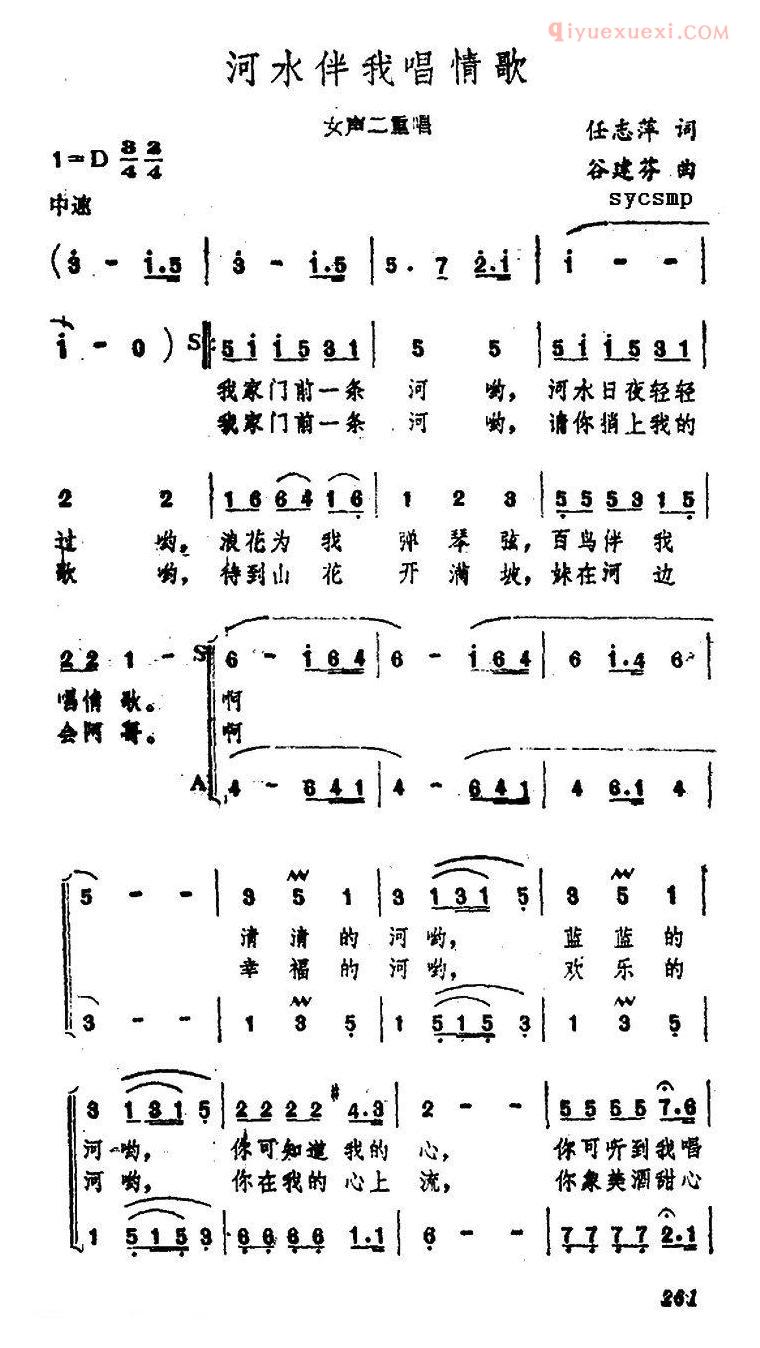 qiyuexuexi.COM
河水伴我唱情歌
女声二重唱
任志萍 词
1=D 3/4 2/4
谷建芬 曲
中速
sycsmp
(3 - 1.5 | 3 - 1.5 | 5. 7 2.1 | 1 - - |
1 - 0 ) S 5 1 1 5 3 1 | 5 5 | 5 1 1 5 3 1 |
我家门前一条 河 哟, 河水日夜轻轻
我家门前一条 河 哟, 请你捎上我的
2 2 | 1 6 6 4 1 6 | 1 2 3 | 5 5 5 3 1 5 |
过 哟, 浪花为 我 弹 琴 弦, 百鸟伴 我
歌 哟, 待到山 花 开 满 坡, 妹在河 边
2 2 1 - S 6 - 1 6 4 | 6 - 1 6 4 | 6 1.4 6 |
唱情 歌。 啊
会阿 哥。 啊
A 4 - 6 4 1 | 4 - 6 4 1 | 4 6.1 4 |
5 - - | 3 5 1 | 3 1 3 1 5 | 3 5 1 |
清 清 的 河 哟, 蓝 蓝 的
幸 福 的 河 哟, 欢 乐 的
3 - - | 1 3 5 | 1 5 1 5 3 | 1 3 5 |
3 1 3 1 5 | 2 2 2 2 #4.3 | 2 - - | 5 5 5 5 7.6 |
河 哟, 你可知道 我的 心, 你可听到我唱
河 哟, 你在我的 心上 流, 你象美酒甜心
1 5 1 5 3 | 6 6 6 6 1.1 | 6 - - | 7 7 7 7 2.1 |
261